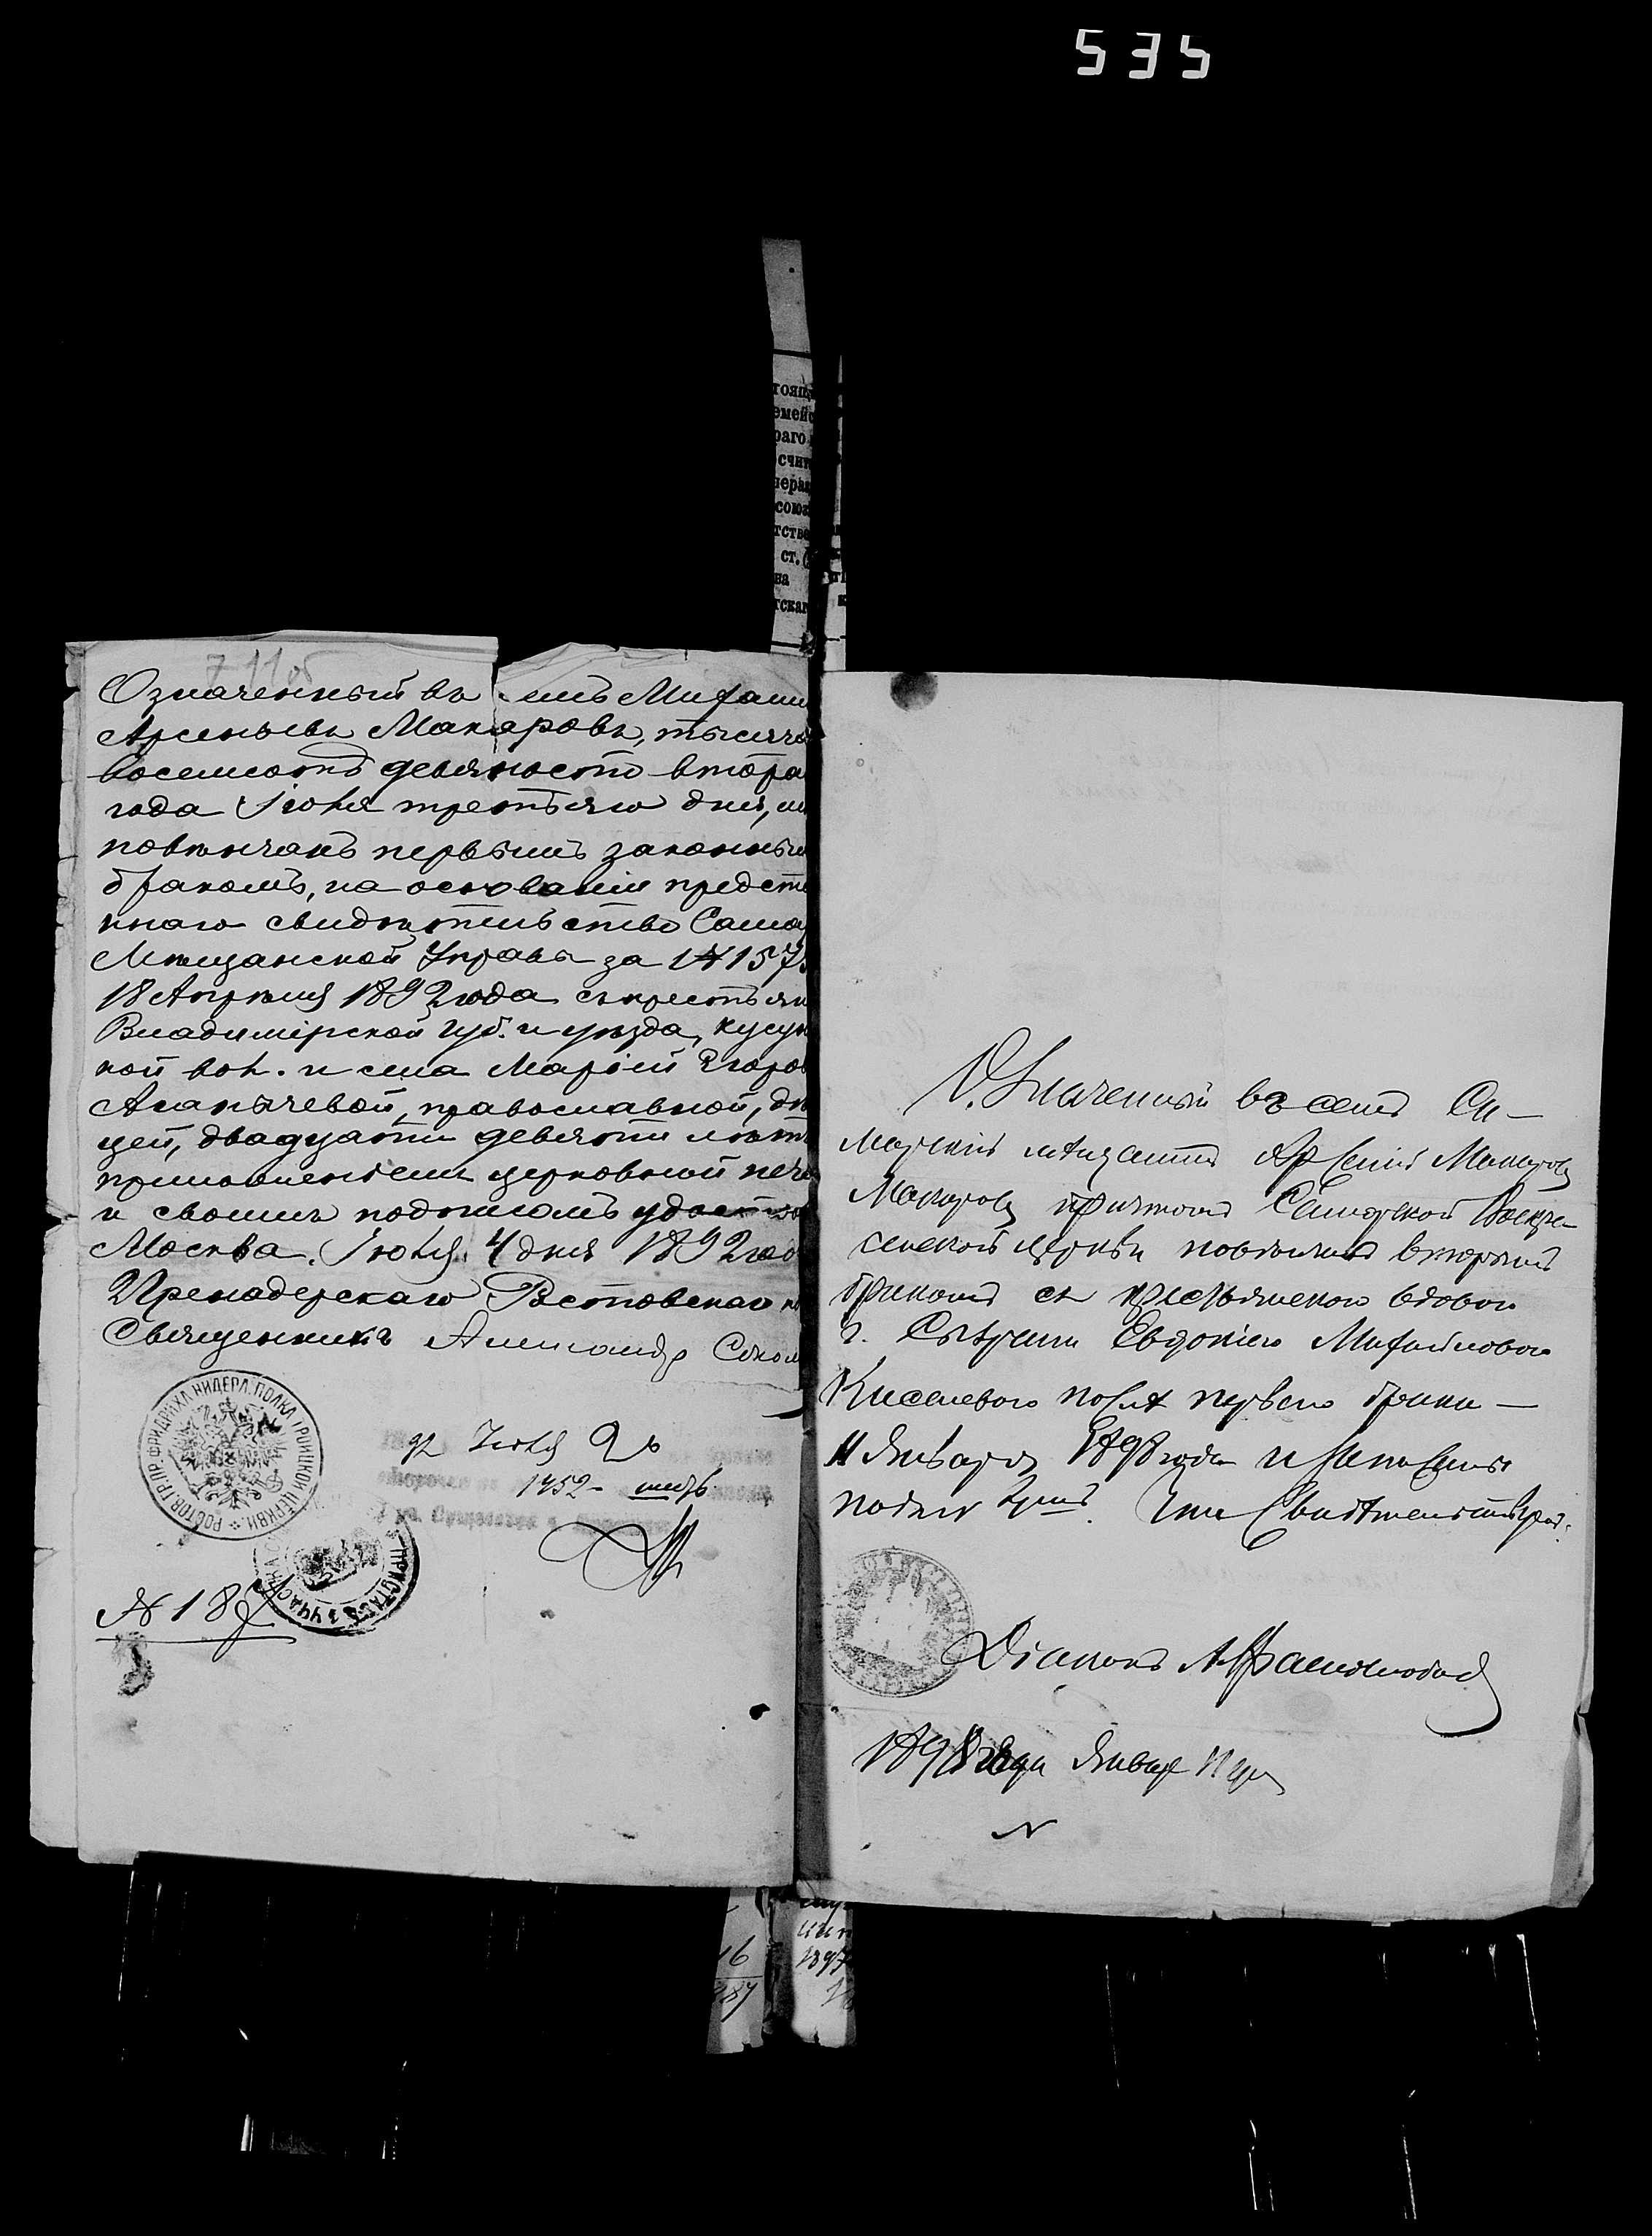 535
тоящ
емейс
раго
счит
нерал
союз
тстве
ст.
на
тскаг
7 11 об
Означенный въ семъ Михаил
Арсеньевъ Макаровъ, тысяча
восемсотъ девяносто втора
года Іюня третьяго дня,
повѣнчанъ первымъ законны
бракомъ, на основаніи предст
ннаго свидѣтельства Сама
Мѣщанской Управы за № 157
18 Апрѣля 1892 года съ крестьян
Владимірской губ. и уѣзда, Кусун
кой вол. и села Маріей Егоров
Ананьчевой, православной, дѣ
цей, двадцати девяти лѣтъ
приложеніемъ церковной печа
и своимъ подписомъ удост
Москва. Іюня 4 дня 1892 год
Гренадерскаго Ростовскаго п
Священникъ Александр Сокол
РОСТОВ. ГР. ПР. ФРИДРИХА НИДЕРЛ. ПОЛКА ТРОИЦКОЙ ЦЕРКВИ
92 Іюня 9
1452
ПРИСТАВЪ 3 УЧАС
№ 187
Означенный въ семъ Са-
марскій мѣщанинъ Арсеній Макаровъ
Макаровъ причтомъ Самарской Воскре-
сенской церкви повѣнчанъ вторымъ
бракомъ съ крестьянскою вдовою
г. Сызрани Евдокіею Михайловою
Киселевою послѣ перваго брака —
11 Января 1898 года и записанъ
подъ № 2мъ. Чѣмъ Свидѣтельствуетъ
Діаконъ А.
1898 года Январ 11 дня
№
16
1897